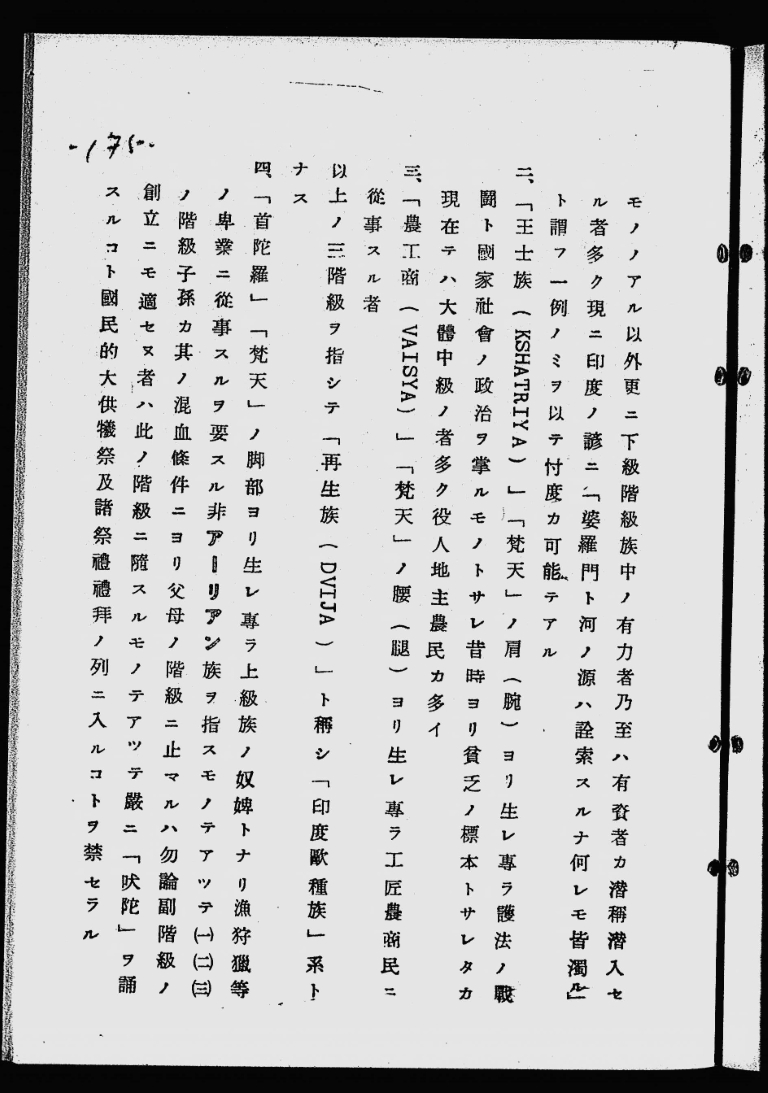 -175-
モノノアル以外更ニ下級階級族中ノ有力者乃至ハ有資者カ潜稱潜入セ
ル者多ク現ニ印度ノ諺ニ「婆羅門ト河ノ源ハ詮索スルナ何レモ皆濁ル」
ト謂フ一例ノミヲ以テ忖度カ可能テアル
二、「王士族(KSHATRIYA)」「梵天」ノ肩(腕)ヨリ生レ專ラ護法ノ戰
鬪ト國家社會ノ政治ヲ掌ルモノトサレ昔時ヨリ貧乏ノ標本トサレタカ
現在テハ大體中級ノ者多ク役人地主農民カ多イ
三、「農工商(VAISYA)」「梵天」ノ腰(腿)ヨリ生レ專ラ工匠農商民ニ
從事スル者
以上ノ三階級ヲ指シテ「再生族(DVIJA)」ト稱シ「印度歐種族」系ト
ナス
四、「首陀羅」「梵天」ノ脚部ヨリ生レ專ラ上級族ノ奴婢トナリ漁狩獵等
ノ卑業ニ從事スルヲ要スル非アーリアン族ヲ指スモノテアツテ㈠㈡㈢
ノ階級子孫カ其ノ混血條件ニヨリ父母ノ階級ニ止マルハ勿論副階級ノ
創立ニモ適セヌ者ハ此ノ階級ニ隨スルモノテアツテ嚴ニ「吠陀」ヲ誦
スルコト國民的大供犧祭及諸祭禮禮拜ノ列ニ入ルコトヲ禁セラル